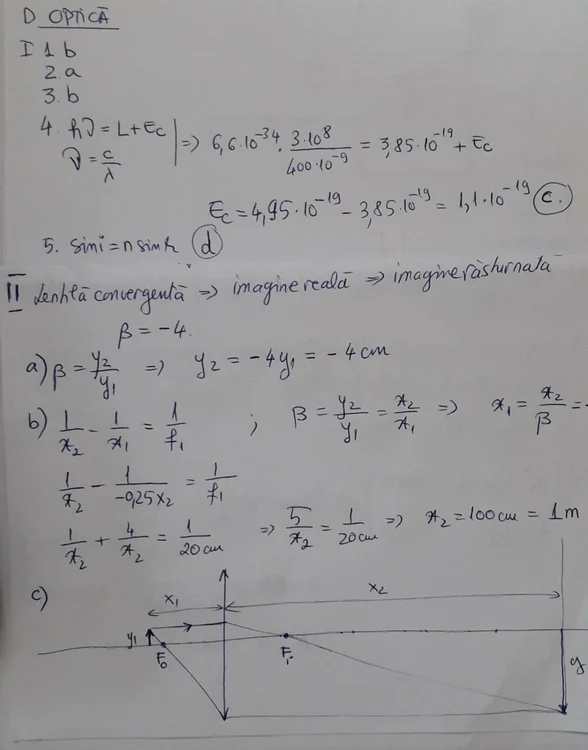 D OPTICĂ
I 1 b
2. a
3. b
4. hν = L + Ec
ν = c/λ
=> 6,6·10^-34 · 3·10^8/400·10^-9 = 3,85·10^-19 + Ec
Ec = 4,95·10^-19 - 3,85·10^-19 = 1,1·10^-19 c.
5. sin i = n sin r d
II Lentilă convergentă => imagine reală => imagine răsturnată
β = -4.
a) β = y2/y1 => y2 = -4y1 = -4 cm
b) 1/x2 - 1/x1 = 1/f1 ; β = y2/y1 = x2/x1 => x1 = x2/β =
1/x2 - 1/-0,25x2 = 1/f1
1/x2 + 4/x2 = 1/20cm => 5/x2 = 1/20cm => x2 = 100cm = 1m
c) x1 x2
y1 Fo Fi y